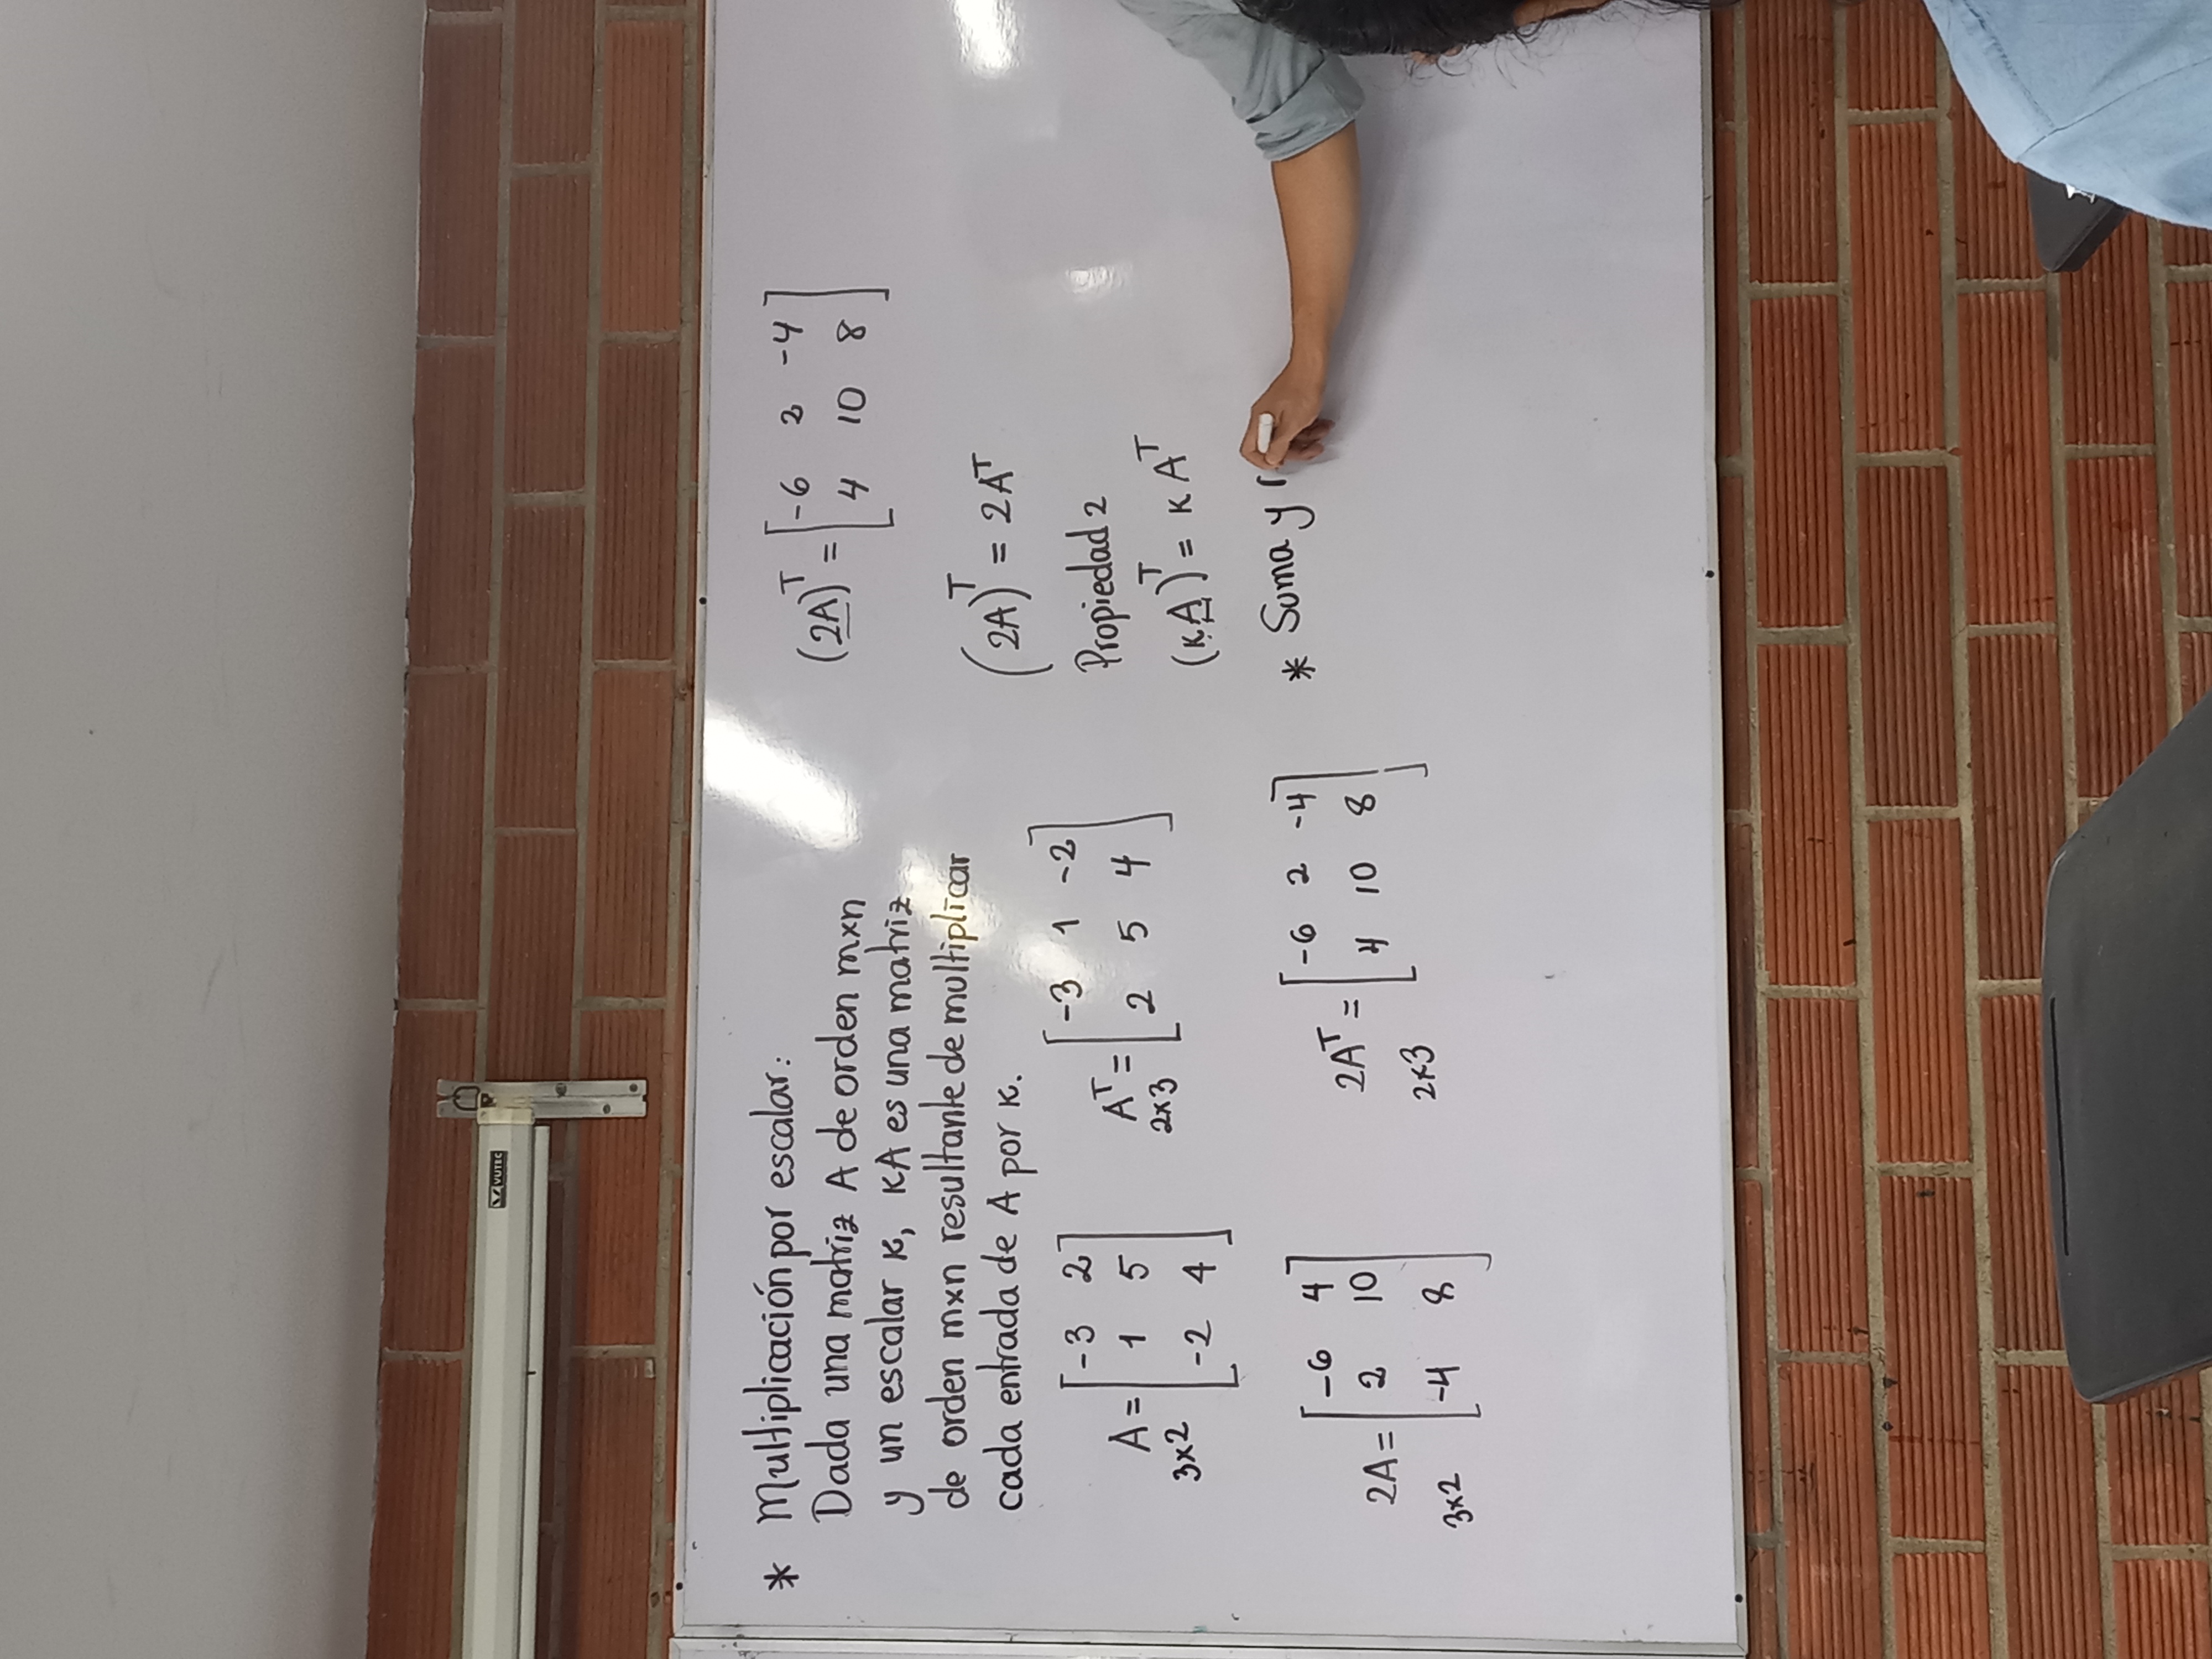 VUTEC
* Multiplicación por escalar:
Dada una matriz A de orden mxn
y un escalar κ, κA es una matriz
de orden mxn resultante de multiplicar
cada entrada de A por κ.
A = [-3 2
1 5
-2 4]
3x2
A^T = [-3 1 -2
2 5 4]
2x3
2A = [-6 4
2 10
-4 8]
3x2
2A^T = [-6 2 -4
4 10 8]
2x3
(2A)^T = [-6 2 -4
4 10 8]
(2A)^T = 2A^T
Propiedad 2
(κA)^T = κA^T
* Suma y